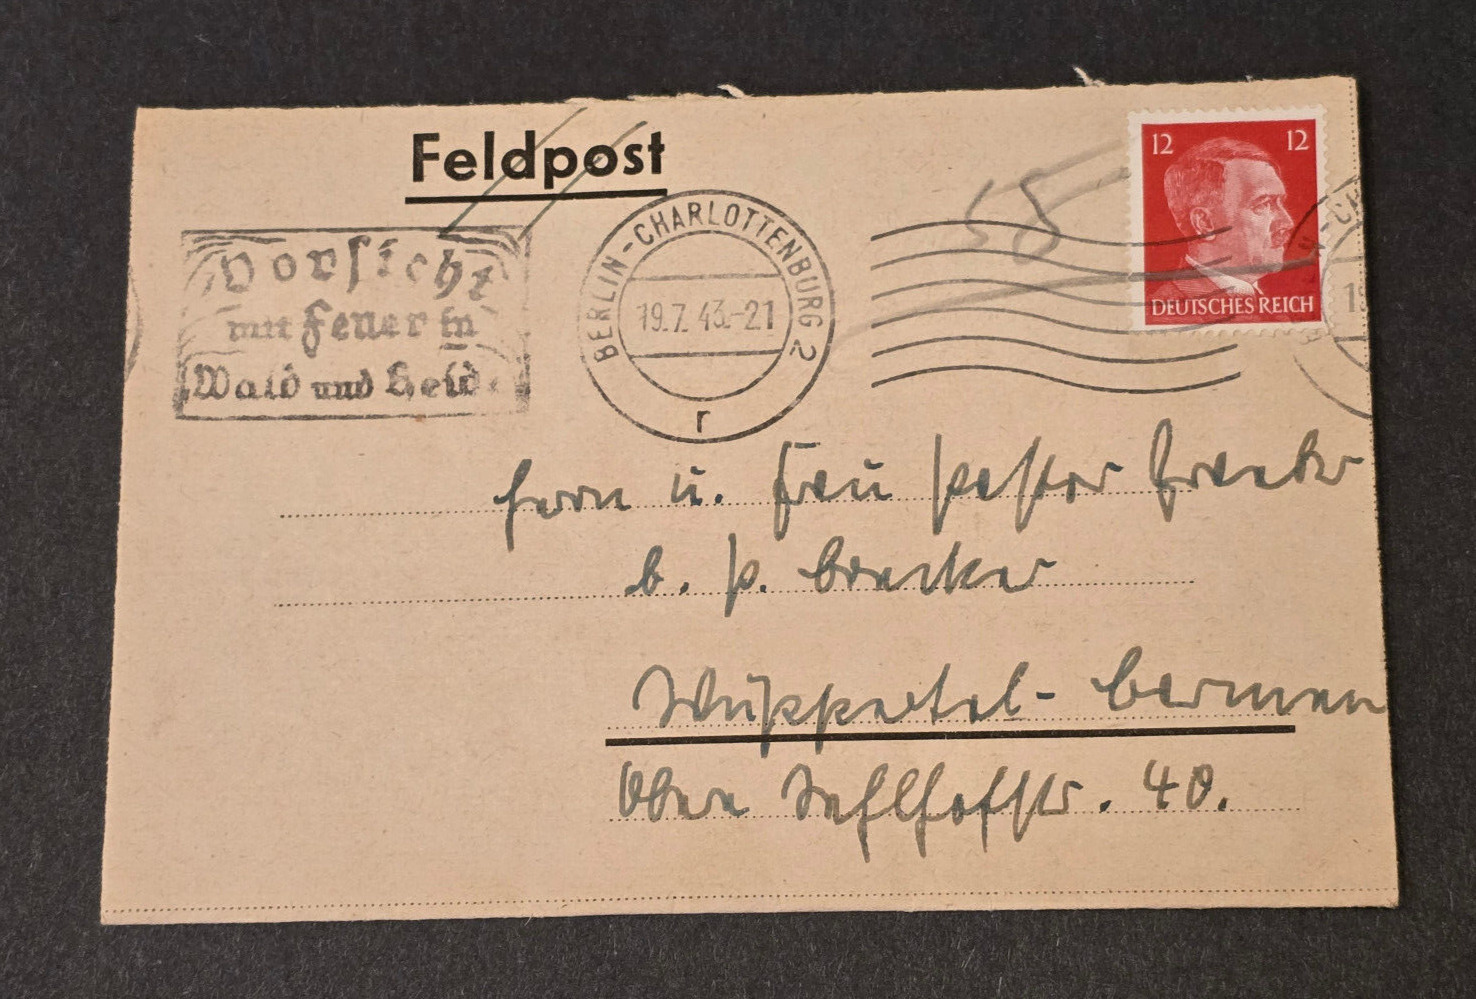 Feldpost
12 12
DEUTSCHES REICH
55
Vorsicht
mit Feuer in
Wald und Heide
BERLIN-CHARLOTTENBURG 2
19.7.43.-21
r
Herrn u. Frau Pastor
b. P. Brecker
Wuppertal-Barmen
Obere Sehlhofstr. 40.